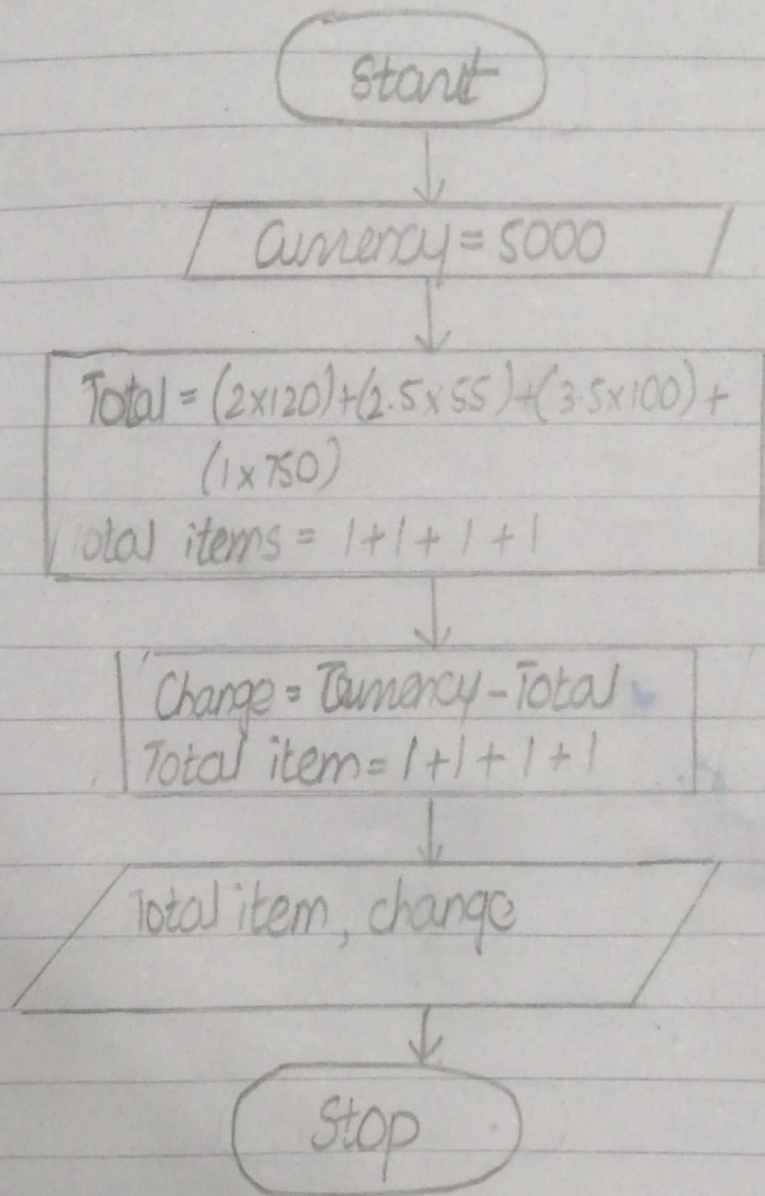 Start
Currency = 5000
Total = (2x120)+(2.5x55)+(3.5x100)+
(1x750)
Total items = 1+1+1+1
Change = Currency - Total
Total item = 1+1+1+1
Total item, change
Stop